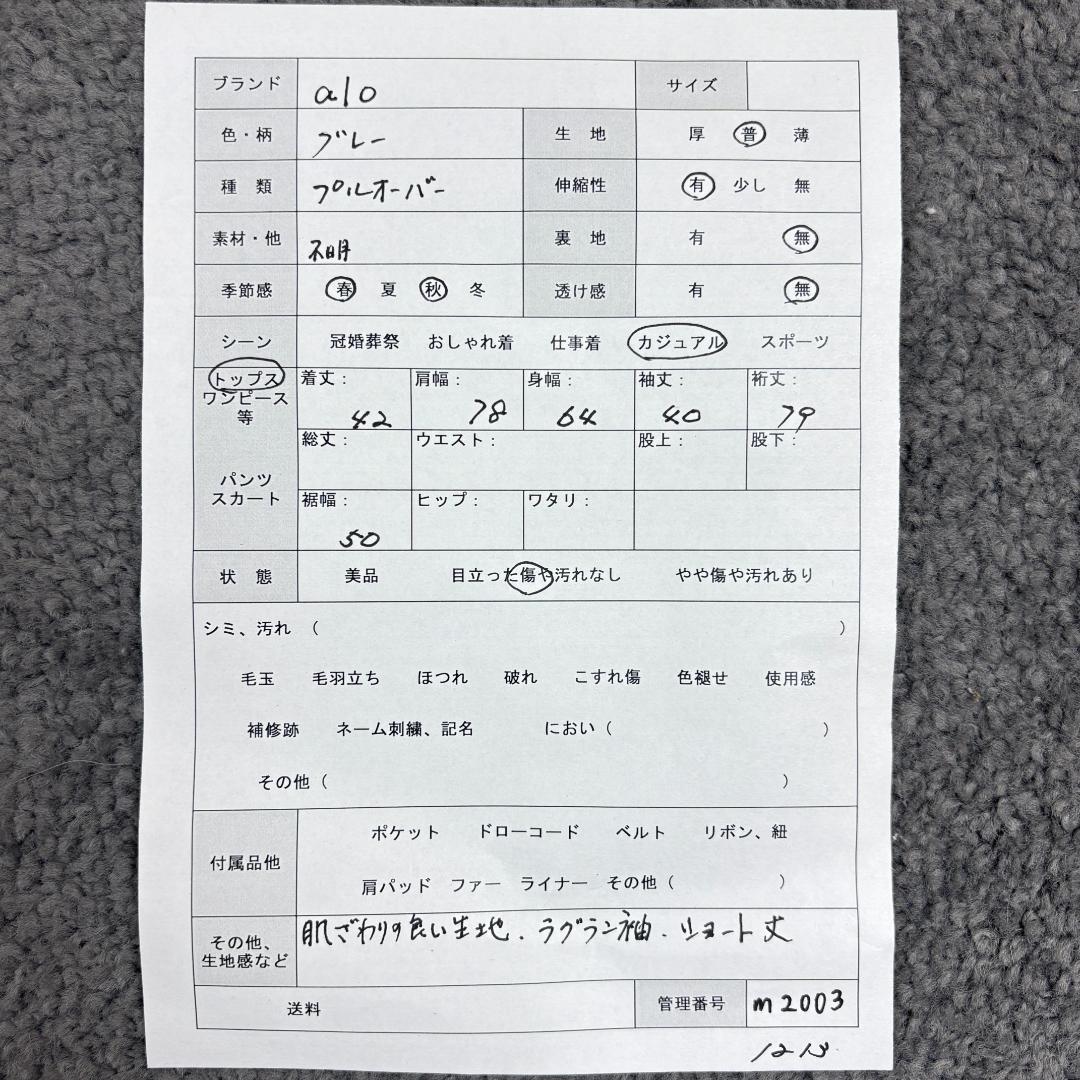 ブランド alo サイズ
色・柄 グレー 生地 厚 普 薄
種類 プルオーバー 伸縮性 有 少し 無
素材・他 不明 裏地 有 無
季節感 春 夏 秋 冬 透け感 有 無
シーン 冠婚葬祭 おしゃれ着 仕事着 カジュアル スポーツ
トップス 着丈： 肩幅： 身幅： 袖丈： 裄丈：
ワンピース
等 42 78 64 40 79
総丈： ウエスト： 股上： 股下：
パンツ
スカート 裾幅： ヒップ： ワタリ：
50
状態 美品 目立った傷や汚れなし やや傷や汚れあり
シミ、汚れ （ ）
毛玉 毛羽立ち ほつれ 破れ こすれ傷 色褪せ 使用感
補修跡 ネーム刺繍、記名 におい（ ）
その他（ ）
ポケット ドローコード ベルト リボン、紐
付属品他
肩パッド ファー ライナー その他（ ）
肌ざわりの良い生地．ラグラン袖．ショート丈
その他、
生地感など
送料 管理番号 m2003